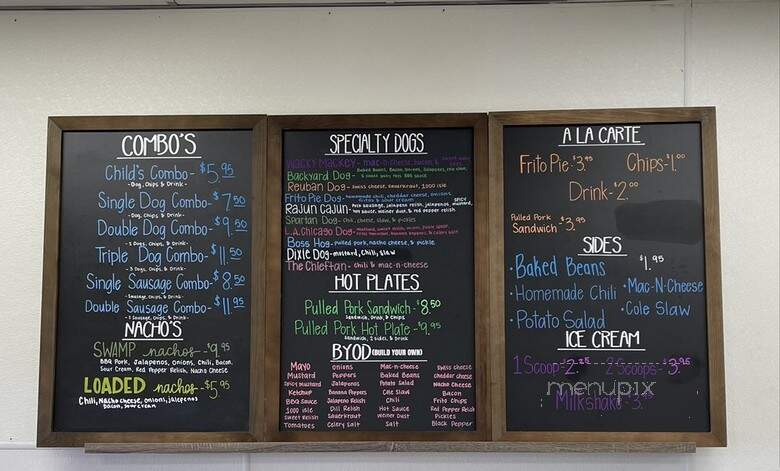 COMBO'S
Child's Combo - $5.95
- Dog, Chips & Drink -
Single Dog Combo - $7.50
- Dog, Chips & Drink -
Double Dog Combo - $9.50
- 2 Dogs, Chips, & Drink -
Triple Dog Combo - $11.50
- 3 Dogs, Chips, & Drink -
Single Sausage Combo - $8.50
- Sausage, Chips, & Drink -
Double Sausage Combo - $11.95
- 2 Sausage, Chips, & Drink -
NACHO'S
SWAMP nachos - $9.95
BBQ Pork, Jalapenos, onions, Chili, Bacon,
Sour Cream, Red Pepper Relish, Nacho Cheese
LOADED nachos - $5.95
Chili, Nacho Cheese, onions, jalapenos
Bacon, sour cream
SPECIALTY DOGS
Wacky Mackey - mac-n-cheese, bacon &
Backyard Dog - Baked Beans, Bacon, Onions, Jalapenos, cole slaw,
& sweet baby rays BBQ sauce
Reuban Dog - Swiss cheese, Sauerkraut, 1000 isle
Frito Pie Dog - homemade chili, cheddar cheese, onions,
fritos & sour cream
Rajun Cajun - pork sausage, jalapeno relish, jalapenos, spicy mustard,
hot sauce, weiner dust, & red pepper relish
Spartan Dog - Chili, cheese, slaw, & pickles
L.A. Chicago Dog - mustard, sweet relish, onion,
Boss Hog - pulled pork, nacho cheese, & pickle
Dixie Dog - mustard, Chili, slaw
The Chieftan - chili & mac-n-cheese
HOT PLATES
Pulled Pork Sandwich - $8.50
Sandwich, Drink, & Chips
Pulled Pork Hot Plate - $9.95
Sandwich, 2 sides, & Drink
BYOD (BUILD YOUR OWN)
Mayo Onions Mac-n-cheese Swiss cheese
Mustard Peppers Baked Beans cheddar cheese
Spicy Mustard Jalapenos Potato Salad Nacho Cheese
Ketchup Banana Peppers Cole Slaw Bacon
BBQ Sauce Jalapeno Relish Chili Frito Chips
1000 isle Dill Relish Hot Sauce Red Pepper Relish
Sweet Relish Sauerkraut Weiner Dust Pickles
Tomatoes Celery Salt Salt Black Pepper
A LA CARTE
Frito Pie - $3.95 Chips - $1.00
Drink - $2.00
Pulled Pork
Sandwich - $3.95
SIDES
$1.95
• Baked Beans
• Homemade Chili • Mac-N-Cheese
• Potato Salad • Cole Slaw
ICE CREAM
1 Scoop - 2.25 2 Scoops - $3.95
menupix
Milkshake - 3.